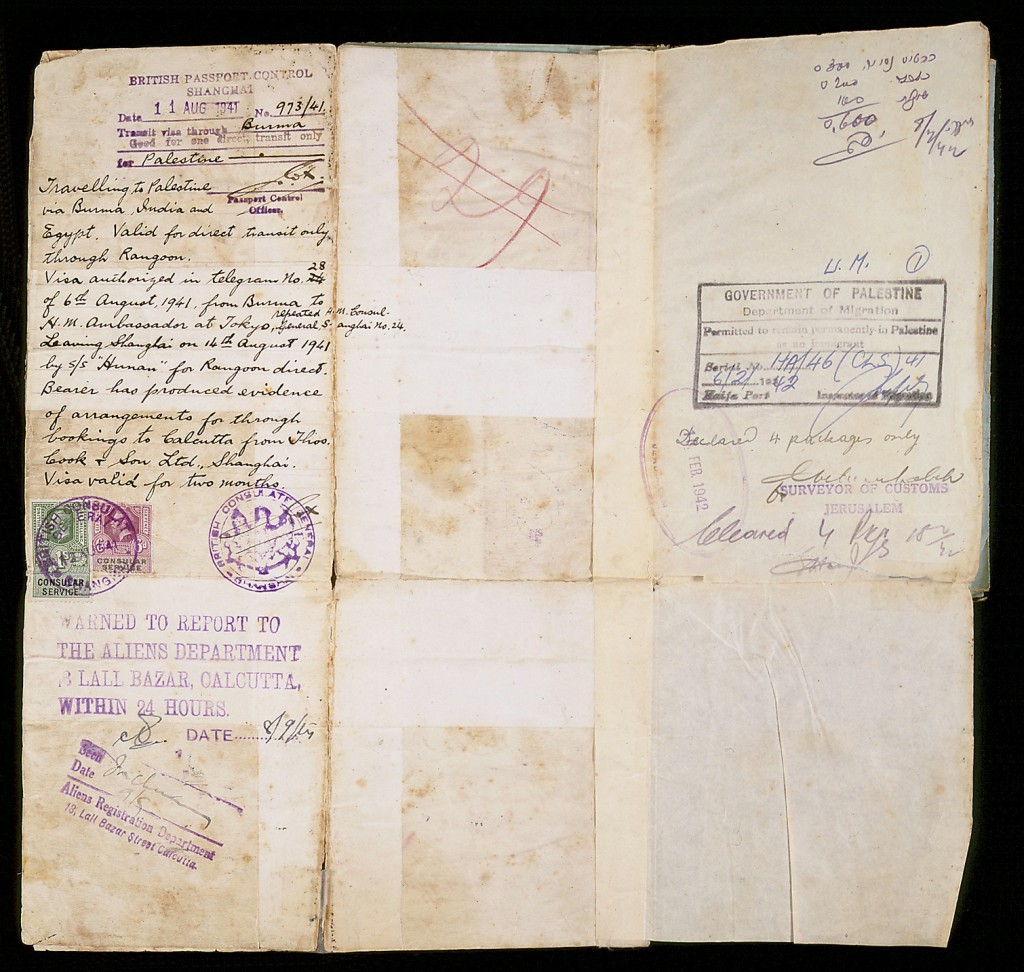 BRITISH PASSPORT CONTROL
SHANGHAI
Date 11 AUG 1941 No. 973/41.
Transit visa through Burma
Good for one direct transit only
for Palestine
Cox.
Passport Control
Officer.
Travelling to Palestine
via Burma, India and
Egypt. Valid for direct transit only
through Rangoon.
Visa authorized in telegram No. 28
of 6th August, 1941, from Burma to
H.M. Ambassador at Tokyo, repeated H.M. Consul-
General, Shanghai No. 24.
Leaving Shanghai on 14th August 1941
by s/s "Hunan" for Rangoon direct.
Bearer has produced evidence
of arrangements for through
bookings to Calcutta from Thos.
Cook & Son Ltd., Shanghai.
Visa valid for two months.
BRITISH CONSULATE GENERAL
SHANGHAI
CONSULAR
SERVICE
CONSULAR
SERVICE
BRITISH CONSULATE GENERAL
WARNED TO REPORT TO
THE ALIENS DEPARTMENT
LALL BAZAR, CALCUTTA,
WITHIN 24 HOURS.
DATE 8/9/41
Seen
Date
Aliens Registration Department
18, Lall Bazar Street Calcutta.
29
0,600
U. M. 1
GOVERNMENT OF PALESTINE
Department of Migration
Permitted to remain permanently in Palestine
as an immigrant
Serial No. HA/46 (CLS) 41
6/2/1942
Haifa Port Inspector of Migration
Declared 4 packages only
FEB 1942
SURVEYOR OF CUSTOMS
JERUSALEM
Cleared 4